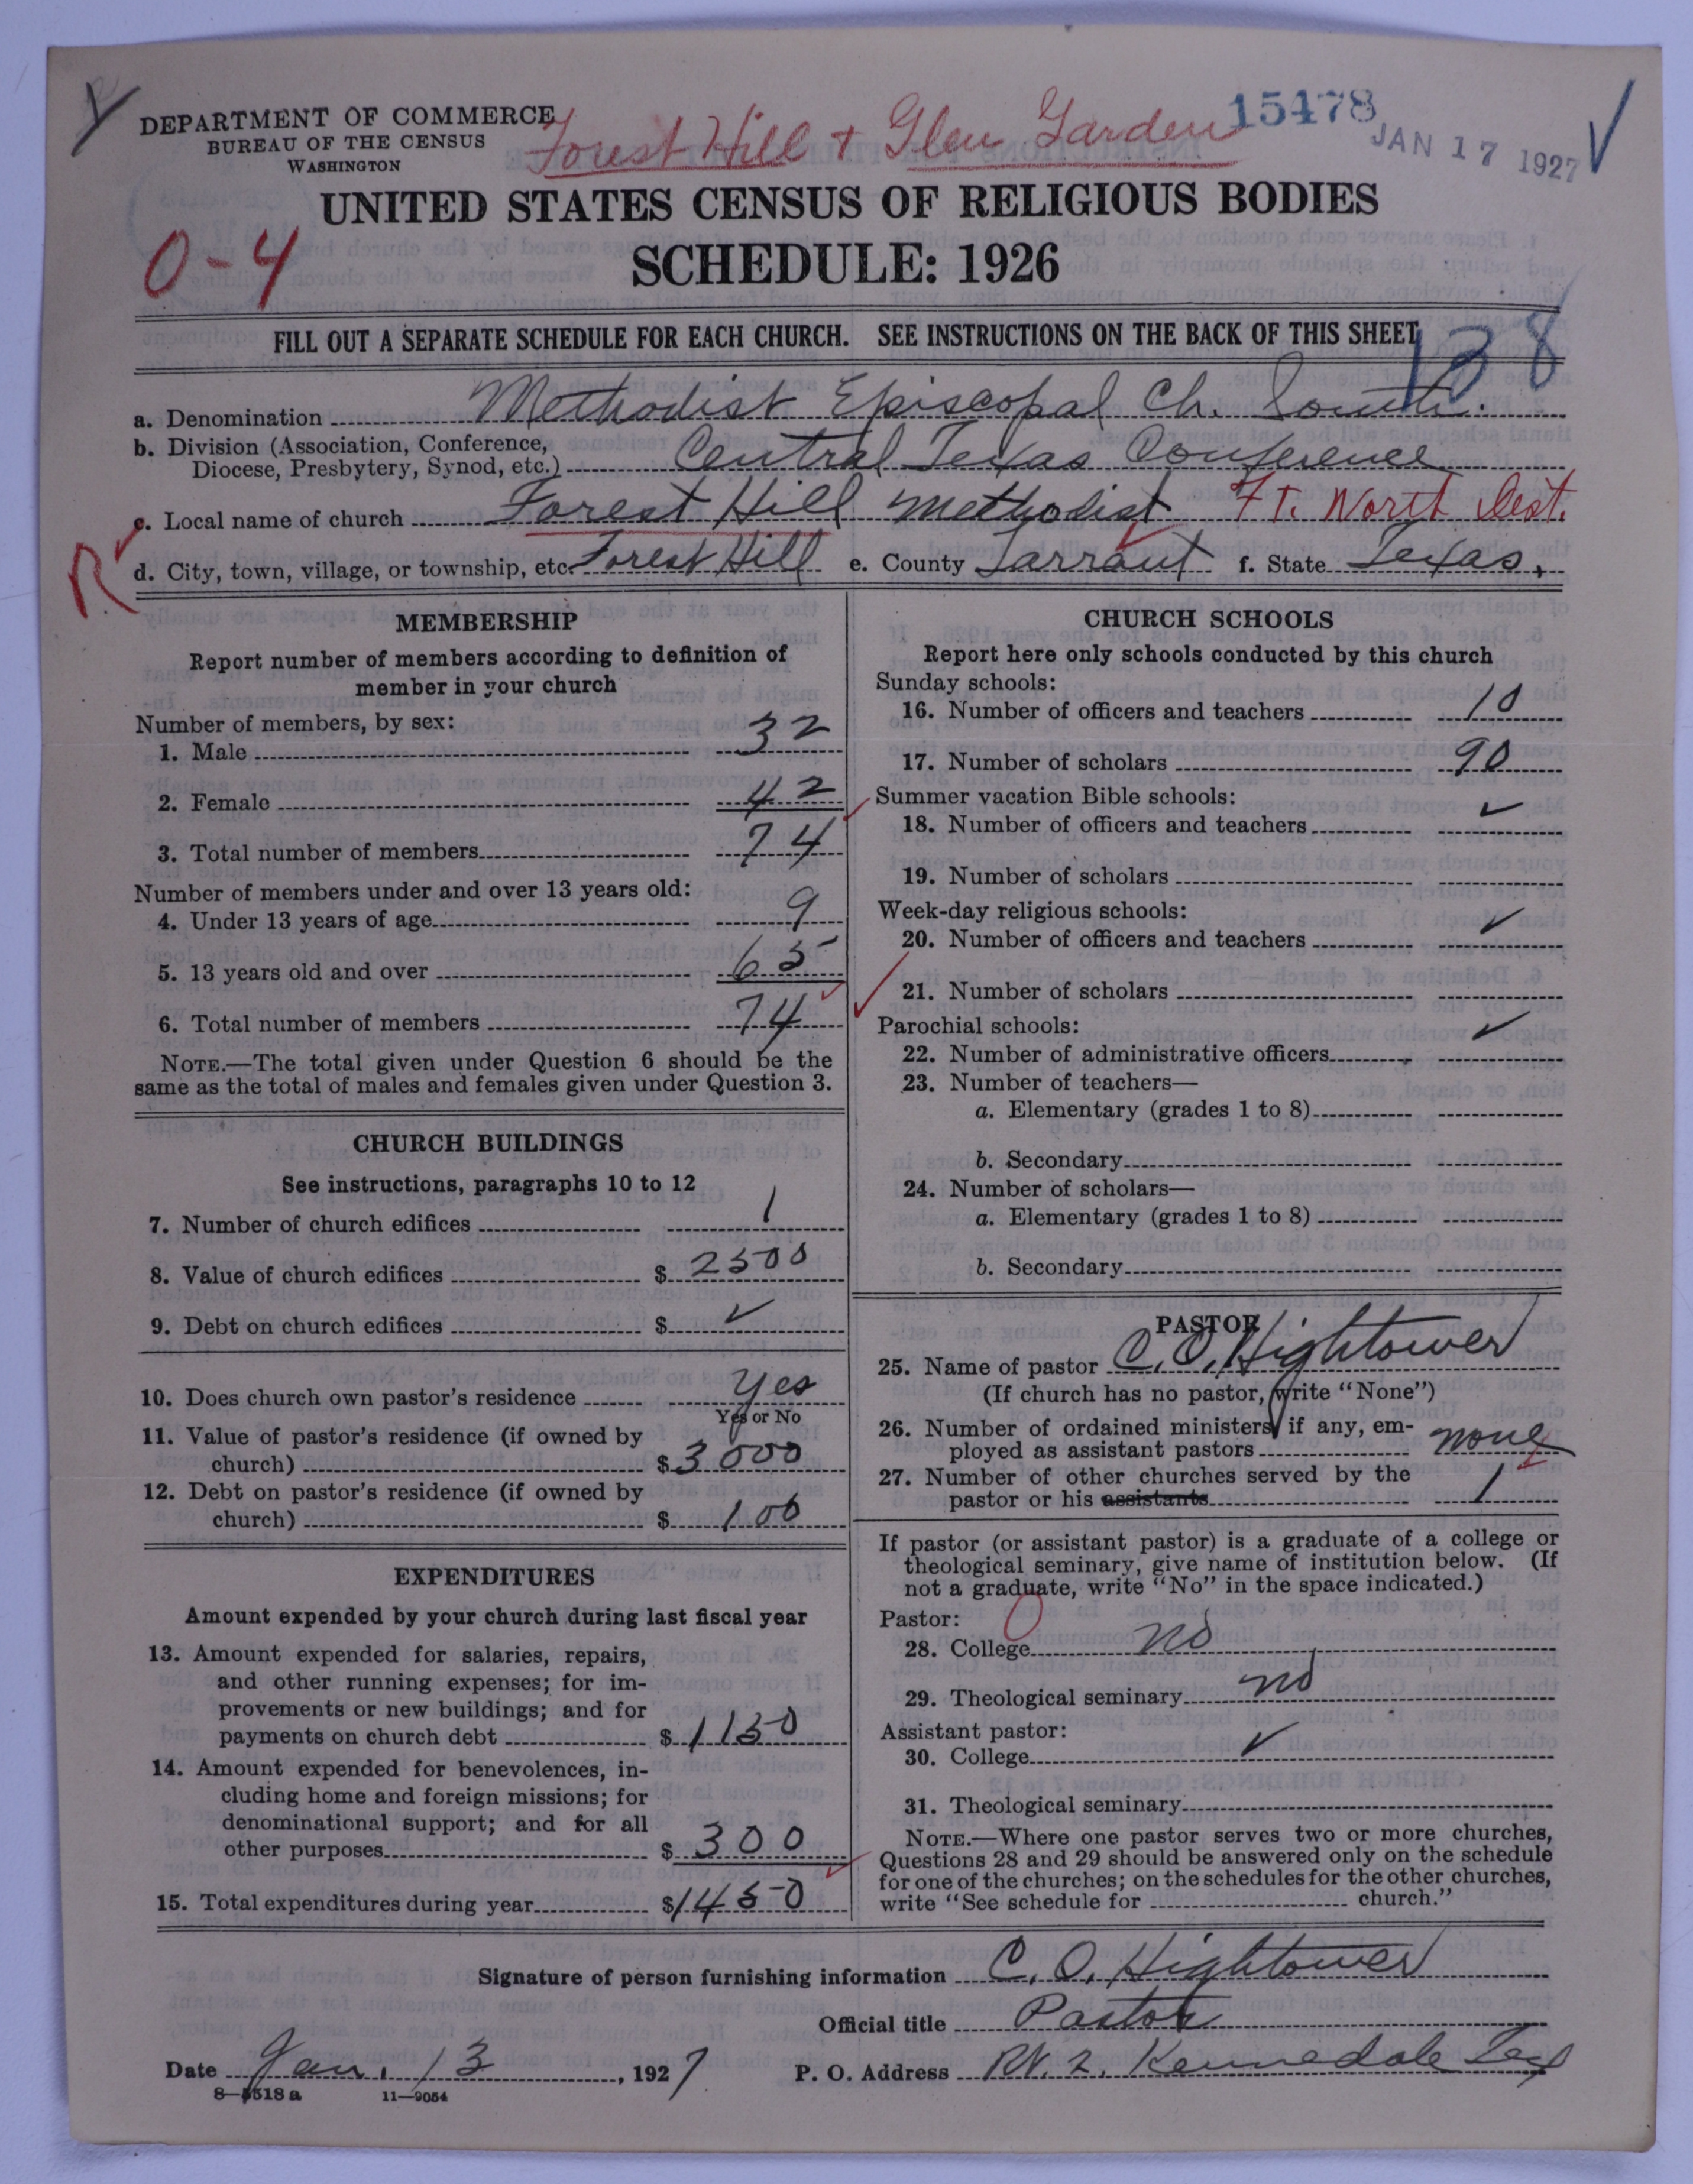 DEPARTMENT OF COMMERCE
BUREAU OF THE CENSUS
WASHINGTON
Forest Hill + Glen Garden
15478
JAN 17 1927
UNITED STATES CENSUS OF RELIGIOUS BODIES
0-4
SCHEDULE: 1926
FILL OUT A SEPARATE SCHEDULE FOR EACH CHURCH. SEE INSTRUCTIONS ON THE BACK OF THIS SHEET
138
a. Denomination Methodist Episcopal Ch. South.
b. Division (Association, Conference,
Diocese, Presbytery, Synod, etc.) Central Texas Conference
c. Local name of church Forest Hill Methodist Ft. North Dist.
R
d. City, town, village, or township, etc. Forest Hill e. County Tarrant f. State Texas,
MEMBERSHIP
Report number of members according to definition of
member in your church
Number of members, by sex:
1. Male 32
2. Female 42
3. Total number of members 74
Number of members under and over 13 years old:
4. Under 13 years of age 9
5. 13 years old and over 65
6. Total number of members 74
NOTE.—The total given under Question 6 should be the
same as the total of males and females given under Question 3.
CHURCH BUILDINGS
See instructions, paragraphs 10 to 12
7. Number of church edifices 1
8. Value of church edifices $ 2500
9. Debt on church edifices $ ✓
10. Does church own pastor's residence Yes
Yes or No
11. Value of pastor's residence (if owned by
church) $ 3000
12. Debt on pastor's residence (if owned by
church) $ 100
EXPENDITURES
Amount expended by your church during last fiscal year
13. Amount expended for salaries, repairs,
and other running expenses; for im-
provements or new buildings; and for
payments on church debt $ 1150
14. Amount expended for benevolences, in-
cluding home and foreign missions; for
denominational support; and for all
other purposes $ 300
15. Total expenditures during year $1450
CHURCH SCHOOLS
Report here only schools conducted by this church
Sunday schools:
16. Number of officers and teachers 10
17. Number of scholars 90
Summer vacation Bible schools:
18. Number of officers and teachers ✓
19. Number of scholars
Week-day religious schools:
20. Number of officers and teachers ✓
21. Number of scholars
Parochial schools:
22. Number of administrative officers ✓
23. Number of teachers—
a. Elementary (grades 1 to 8)
b. Secondary
24. Number of scholars—
a. Elementary (grades 1 to 8)
b. Secondary
PASTOR
25. Name of pastor C. O. Hightower
(If church has no pastor, write "None")
26. Number of ordained ministers, if any, em-
ployed as assistant pastors none
27. Number of other churches served by the
pastor or his assistants 1
If pastor (or assistant pastor) is a graduate of a college or
theological seminary, give name of institution below. (If
not a graduate, write "No" in the space indicated.)
Pastor: 0
28. College no
29. Theological seminary no
Assistant pastor:
30. College ✓
31. Theological seminary
NOTE.—Where one pastor serves two or more churches,
Questions 28 and 29 should be answered only on the schedule
for one of the churches; on the schedules for the other churches,
write "See schedule for church."
Signature of person furnishing information C. O. Hightower
Official title Pastor
Date Jan. 13, 1927 P. O. Address Rt. 2. Kennedale Tex
8—5518 a 11—9054